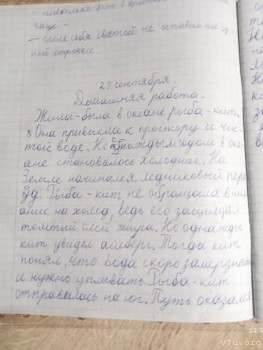 – несколько раз в
чаще.
– после себя святой не оставил ни од-
ной строчки.
23 сентября.
Домашняя работа.
Жила-была в океане рыба-кит.
Она привыкла к простору и чис-
той воде. Но однажды в оке-
ане становилось холоднее. На
Земле начинался ледниковый пери-
од. Рыба-кит не обращала вним-
ание на холод, ведь его защищал
толстый слой жира. Но однажды
кит увидел айсберг. Тогда кит
понял, что вода скоро замерзнет
и нужно уплывать. Рыба-кит
отправилась на юг. Путь оказался
vfu.org